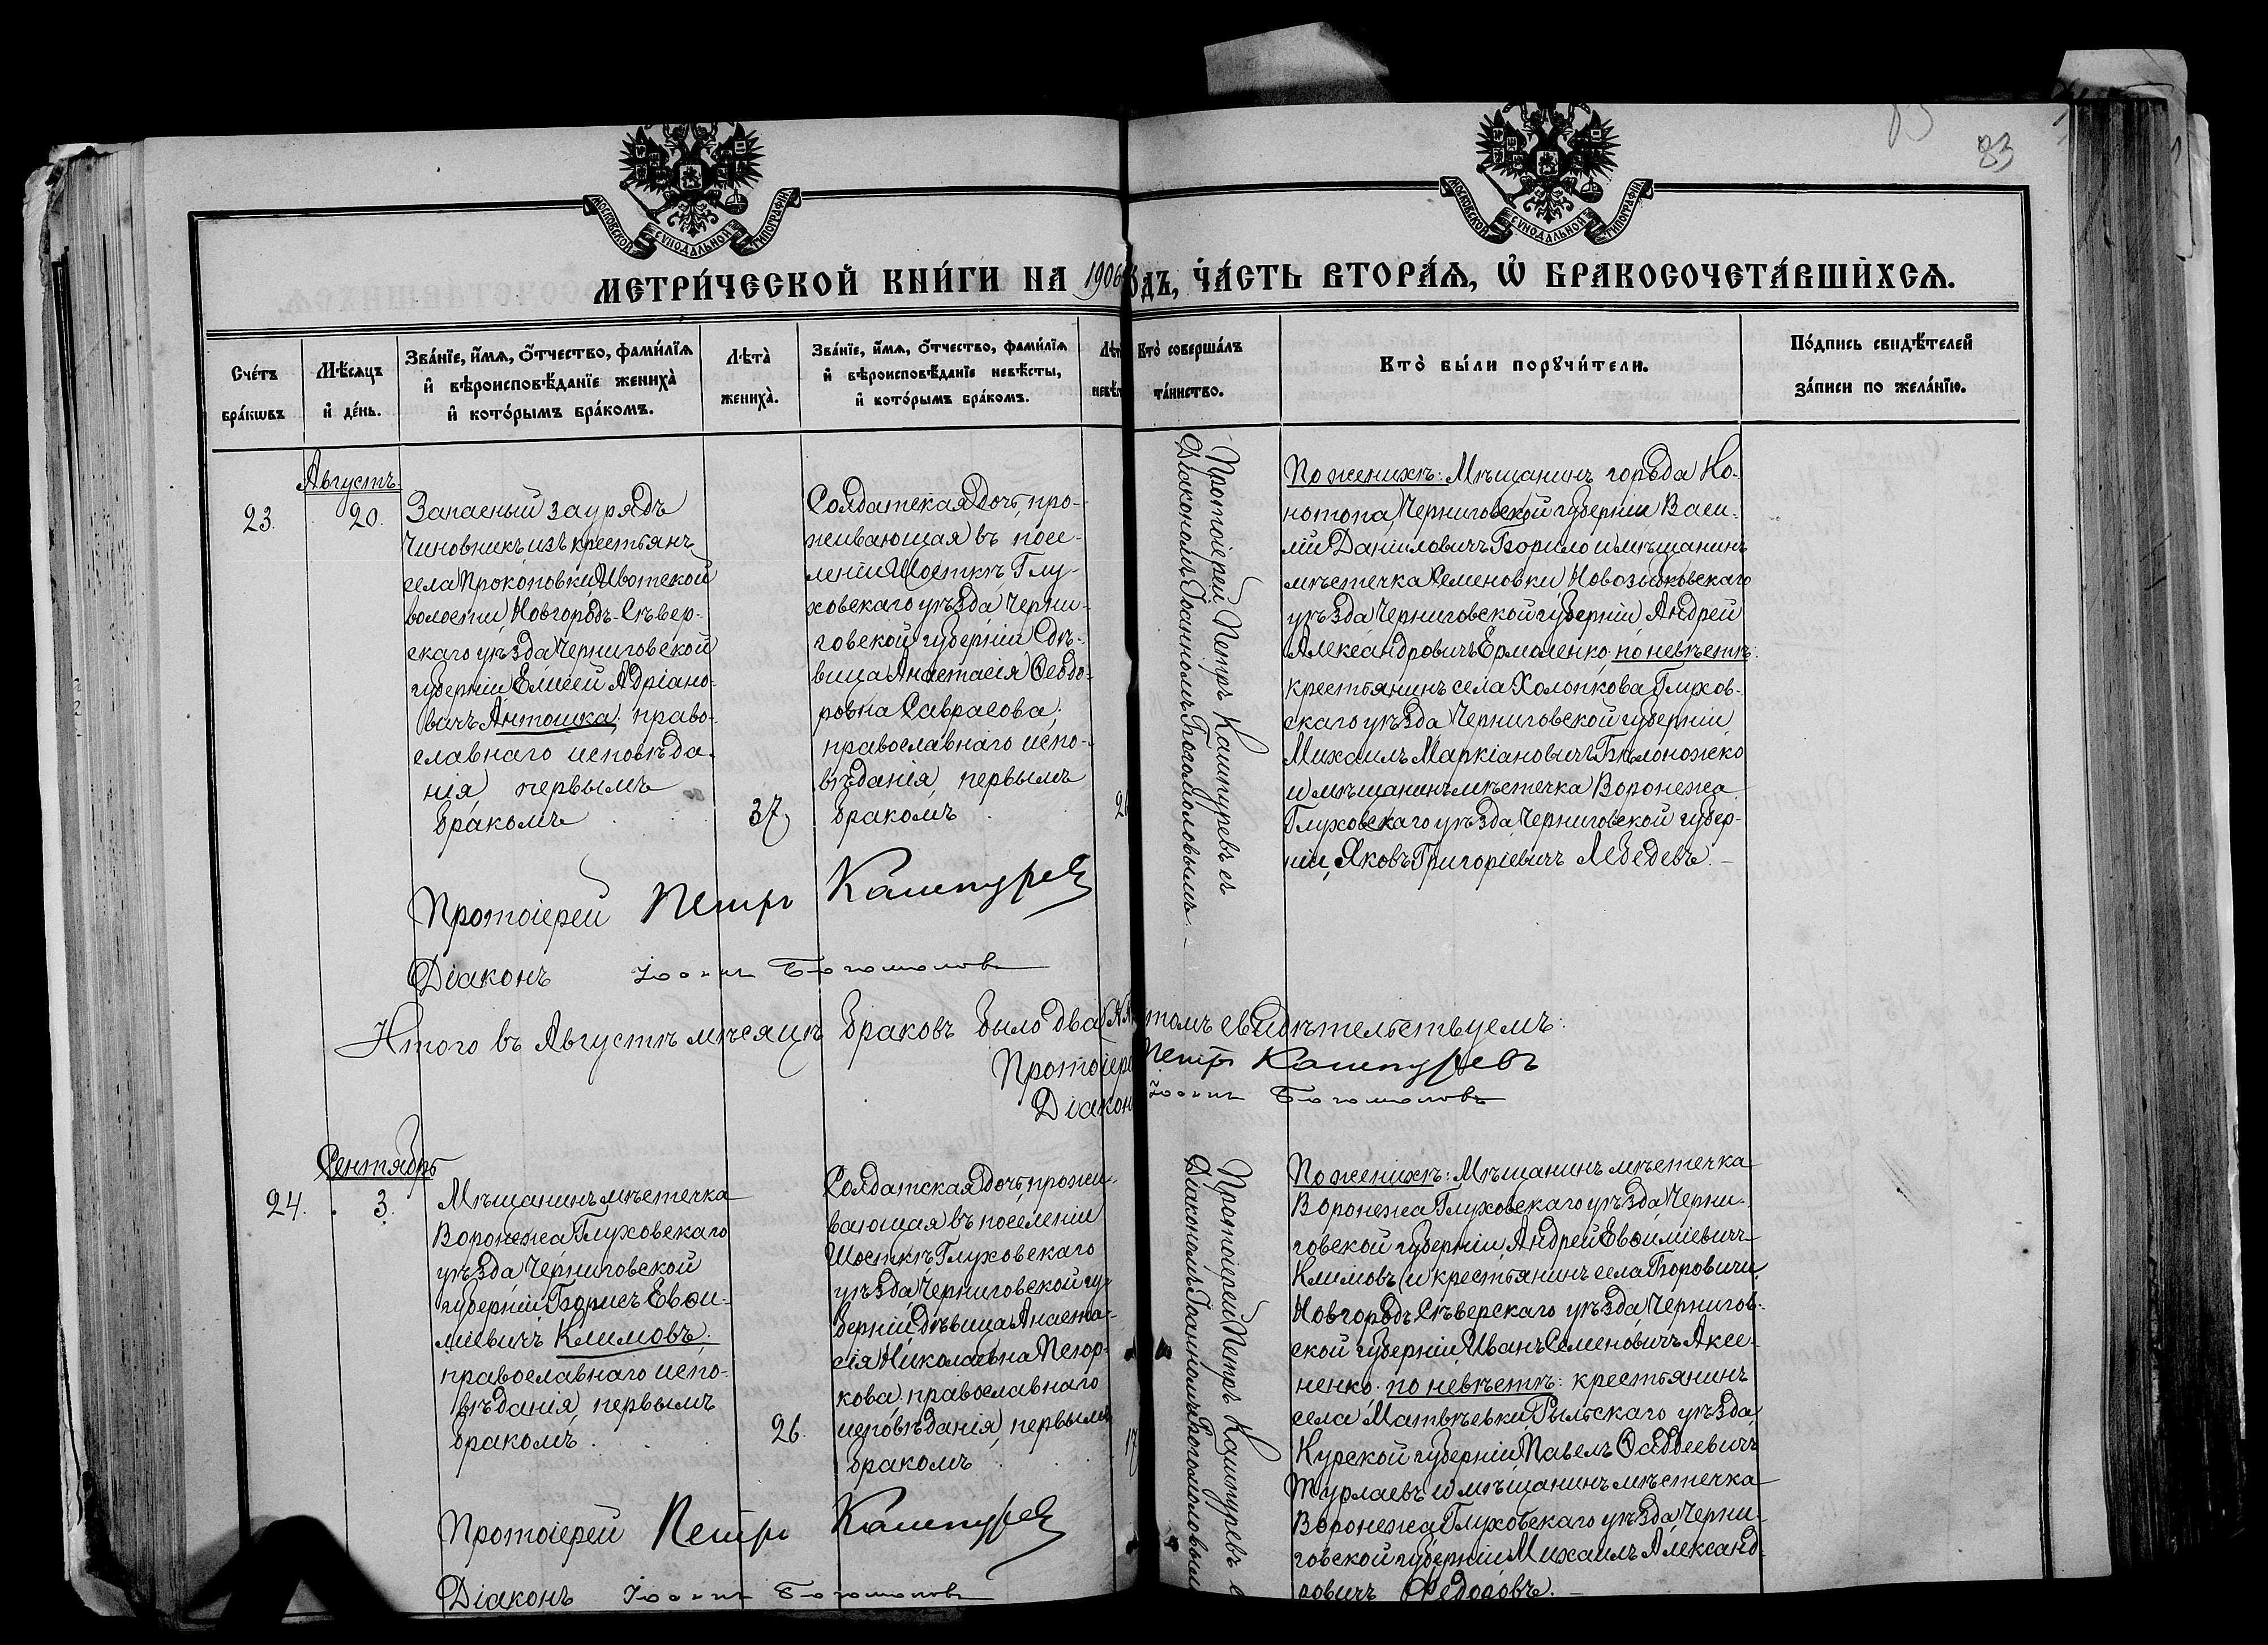 83
МОСКОВСКОЙ СѴНОДАЛЬНОЙ ТИПОГРАФІИ
МОСКОВСКОЙ СѴНОДАЛЬНОЙ ТИПОГРАФІИ
МЕТРИ́ЧЕСКОЙ КНИ́ГИ НА 1906 ОДЪ, ЧА́СТЬ ВТОРА́Ѧ, Ѽ БРАКОСОЧЕТА́ВШИХСѦ.
Сче́тъ
бра́кѡвъ
Мѣ́сѧцъ
и҆ де́нь.
Зва́нїе, и҆́мѧ, ѻ҆́тчество, фами́лїѧ
и҆ вѣроисповѣ́данїе жениха̀
и҆ кото́рымъ бра́комъ.
Лѣта̀
жениха̀.
Зва́нїе, и҆́мѧ, ѻ҆́тчество, фами́лїѧ
и҆ вѣроисповѣ́данїе невѣ́сты,
и҆ кото́рымъ бра́комъ.
Лѣт
невѣс
Кто̀ соверша́лъ
та́инство.
Кто̀ бы́ли порꙋчи́тели.
По́дпись свидѣ́телей
за́писи по жела́нїю.
Августъ.
23.
20.
Запасный заурядъ
чиновникъ изъ крестьянъ
села Прокоповки Ивотской
волости, Новгородъ-Сѣвер-
скаго уѣзда Черниговской
губерніи Елисей Адріано-
вичъ Антошка; право-
славнаго исповѣда-
нія, первымъ
бракомъ
37
Солдатская дочь, про-
живающая въ посе-
леніи Шосткѣ Глу-
ховскаго уѣзда Черни-
говской губерніи дѣ-
вица Анастасія Ѳеодо-
ровна Саврасова;
православнаго испо-
вѣданія, первымъ
бракомъ
2
Протоіерей Петръ Кашпуревъ съ
Діакономъ Іоанномъ Богомоловымъ.
По женихѣ: Мѣщанинъ города Ко-
нотопа, Черниговской губерніи Васи-
лій Даніиловичъ Борило и мѣщанинъ
мѣстечка Семеновки, Новозыбковскаго
уѣзда Черниговской губерніи Андрей
Александровичъ Ермоленко. по невѣстѣ:
крестьянинъ села Холопкова Глухов-
скаго уѣзда Черниговской губерніи
Михаилъ Маркіановичъ Бѣлоножко
и мѣщанинъ мѣстечка Воронежа
Глуховскаго уѣзда, Черниговской губер-
ніи, Яковъ Григоріевичъ Лебедевъ.
Протоіерей Петръ Кашпуревъ
Діаконъ Іоаннъ Богомоловъ
Итого въ Августѣ мѣсяцѣ браковъ было два
томъ свидѣтельствуемъ:
Протоіере Петръ Кашпуревъ
Діакон Іоаннъ Богомоловъ
Сентябрь
24.
3.
Мѣщанинъ мѣстечка
Воронежа Глуховскаго
уѣзда Черниговской
губерніи Борисъ Евѳи-
міевичъ Климовъ.
православнаго испо-
вѣданія, первымъ
бракомъ.
26.
Солдатская дочь, прожи-
вающая въ поселеніи
Шосткѣ Глуховскаго
уѣзда Черниговской гу-
берніи дѣвица Анаста-
сія Николаевна Пегор-
кова, православнаго
исповѣданія, первымъ
бракомъ
17
Протоіерей Петръ Кашпуревъ с
Діакономъ Іоанномъ Богомоловым
По женихѣ: Мѣщанинъ мѣстечка
Воронежа Глуховскаго уѣзда Черни-
говской губерніи, Андрей Евѳиміевичъ
Климовъ и крестьянинъ села Боровичи,
Новгородъ Сѣверскаго уѣзда Чернигов-
ской губерніи Иванъ Семеновичъ Аксе-
ненко. по невѣстѣ: крестьянинъ
села Матвѣевки Рыльскаго уѣзда
Курской губерніи Павелъ Ѳаддеевичъ
Турлаевъ и мѣщанинъ мѣстечка
Воронежа Глуховскаго уѣзда Черни-
говской губерніи Михаилъ Александ-
ровичъ Ѳедоровъ.
Протоіерей Петръ Кашпуревъ
Діаконъ Іоаннъ Богомоловъ